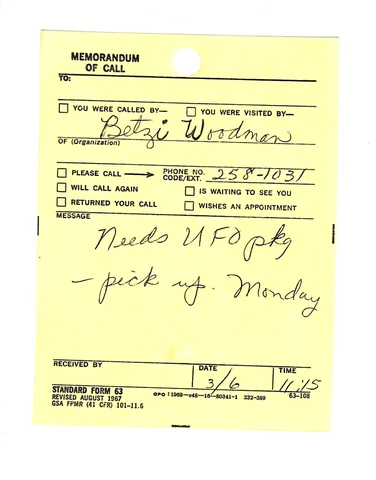 MEMORANDUM
OF CALL
TO:
YOU WERE CALLED BY— YOU WERE VISITED BY—
Betzi Woodman
OF (Organization)
PLEASE CALL PHONE NO. CODE/EXT. 258-1031
WILL CALL AGAIN IS WAITING TO SEE YOU
RETURNED YOUR CALL WISHES AN APPOINTMENT
MESSAGE
Needs UFO pkg
— pick up. Monday
RECEIVED BY DATE TIME
3/6 11:15
STANDARD FORM 63 GPO : 1969—c48—16—80341-1 332-389 63-108
REVISED AUGUST 1967
GSA FPMR (41 CFR) 101-11.6